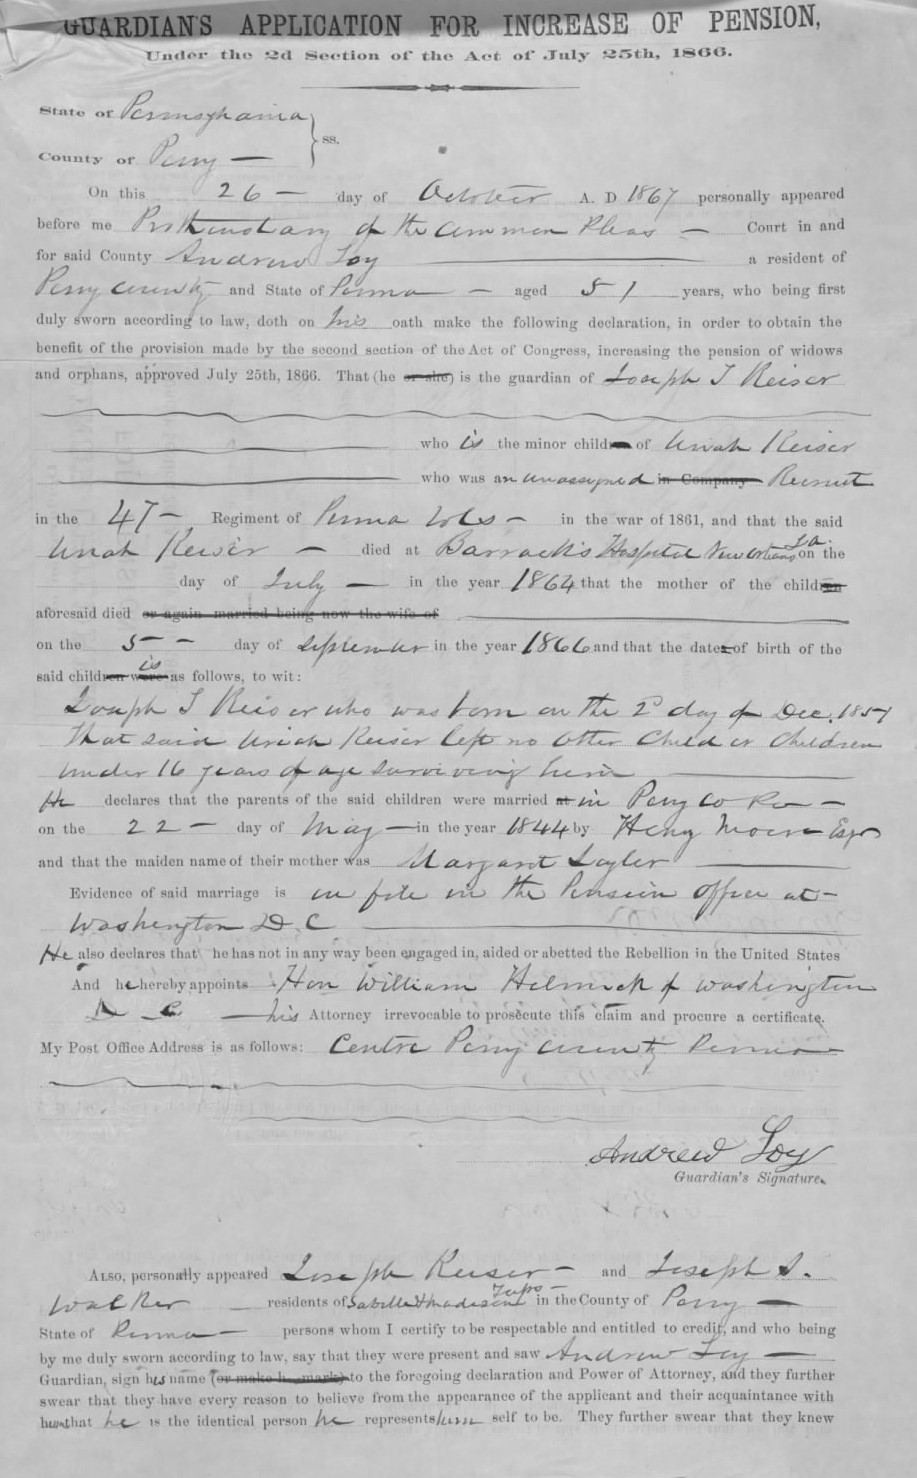 GUARDIAN'S APPLICATION FOR INCREASE OF PENSION,
Under the 2d Section of the Act of July 25th, 1866.
State of Pennsylvania
County of Perry — } ss.
On this 26 — day of October A. D 1867 personally appeared
before me Prothonotary of the Common Pleas — Court in and
for said County Andrew Loy — a resident of
Perry County and State of Penna — aged 51 years, who being first
duly sworn according to law, doth on his oath make the following declaration, in order to obtain the
benefit of the provision made by the second section of the Act of Congress, increasing the pension of widows
and orphans, approved July 25th, 1866. That (he or she) is the guardian of Joseph T Reiser
who is the minor children of Uriah Reiser
who was an unassigned in Company Recruit
in the 47 — Regiment of Penna Vols — in the war of 1861, and that the said
Uriah Reiser — died at Barracks Hospital New Orleans La. on the
day of July — in the year 1864 that the mother of the children
aforesaid died or again married being now the wife of
on the 5 — day of September in the year 1866 and that the dates of birth of the
said children were is as follows, to wit:
Joseph T Reiser who was born on the 2d day of Dec. 1851
That said Uriah Reiser left no other Child or Children
under 16 years of age surviving him
He declares that the parents of the said children were married at in Perry Co Pa —
on the 22 — day of May — in the year 1844 by Henry Moore Esqr
and that the maiden name of their mother was Margaret
Evidence of said marriage is on file in the Pension Office at —
Washington D. C
He also declares that he has not in any way been engaged in, aided or abetted the Rebellion in the United States
And he hereby appoints Hon William Helmick of Washington
D C — his Attorney irrevocable to prosecute this claim and procure a certificate.
My Post Office Address is as follows: Centre Perry County Penna
Andrew Loy
Guardian's Signature.
ALSO, personally appeared Joseph Reiser — and Joseph S.
Walker — residents of Saville & Madison Tups — in the County of Perry —
State of Penna — persons whom I certify to be respectable and entitled to credit, and who being
by me duly sworn according to law, say that they were present and saw Andrew Loy —
Guardian, sign his name (or make h mark) to the foregoing declaration and Power of Attorney, and they further
swear that they have every reason to believe from the appearance of the applicant and their acquaintance with
him that he is the identical person he represents him self to be. They further swear that they knew